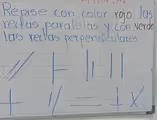 Repise con color rojo las
rectas paralelas y con verde
las rectas perpendiculares